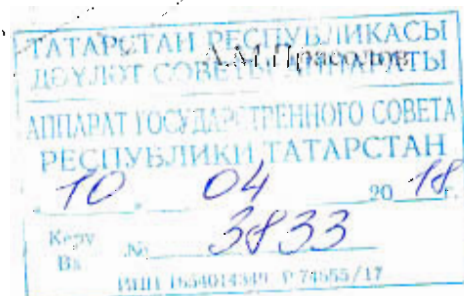 ТАТАРСТАН РЕСПУБЛИКАСЫ
А.М.Прасолов
ДӘҮЛӘТ СОВЕТЫ АППАРАТЫ
АППАРАТ ГОСУДАРСТВЕННОГО СОВЕТА
РЕСПУБЛИКИ ТАТАРСТАН
10 04 2018г.
Керү
Вх. № 3833
ИНН 1654014349 Р 74555/17